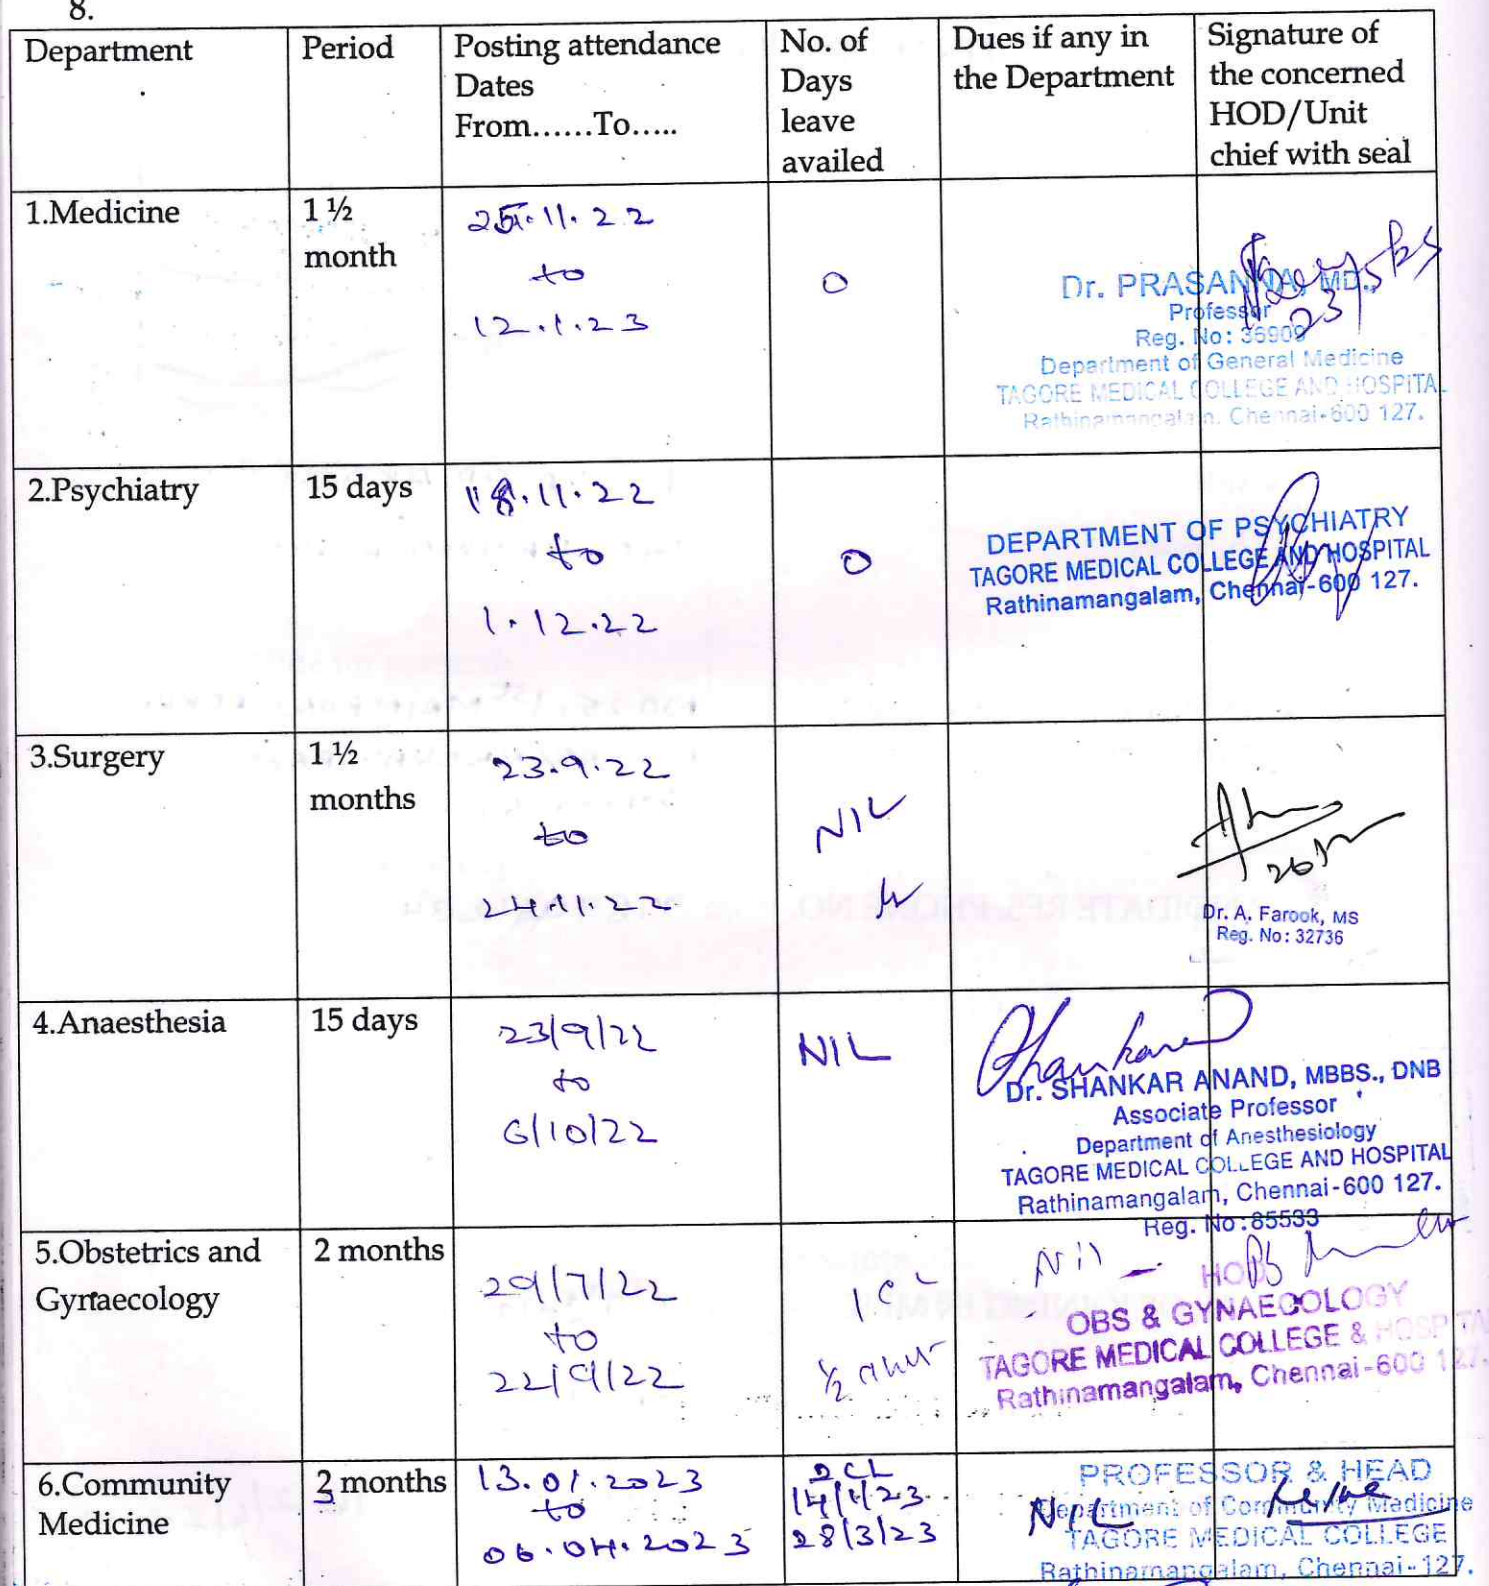 8.
Department
Period
Posting attendance
Dates
From......To.....
No. of
Days
leave
availed
Dues if any in
the Department
Signature of
the concerned
HOD/Unit
chief with seal
1.Medicine
1 ½
month
25.11.22
to
12.1.23
0
Dr. PRASANNA, MD.,
Professor
Reg. No: 36909
Department of General Medicine
TAGORE MEDICAL COLLEGE AND HOSPITAL
Rathinamangalam, Chennai-600 127.
2.Psychiatry
15 days
18.11.22
to
1.12.22
0
DEPARTMENT OF PSYCHIATRY
TAGORE MEDICAL COLLEGE AND HOSPITAL
Rathinamangalam, Chennai-600 127.
3.Surgery
1 ½
months
23.9.22
to
24.11.22
NIL
Dr. A. Farook, MS
Reg. No: 32736
4.Anaesthesia
15 days
23/9/22
to
6/10/22
NIL
Dr. SHANKAR ANAND, MBBS., DNB
Associate Professor
Department of Anesthesiology
TAGORE MEDICAL COLLEGE AND HOSPITAL
Rathinamangalam, Chennai-600 127.
Reg. No:85533
5.Obstetrics and
Gynaecology
2 months
29/7/22
to
22/9/22
1 CL
1/2
Nil
HOD
OBS & GYNAECOLOGY
TAGORE MEDICAL COLLEGE & HOSPITAL
Rathinamangalam, Chennai-600 127.
6.Community
Medicine
3 months
13.01.2023
to
06.04.2023
2 CL
14/1/23
28/3/23
NIL
PROFESSOR & HEAD
Department of Community Medicine
TAGORE MEDICAL COLLEGE
Rathinamangalam, Chennai-127.